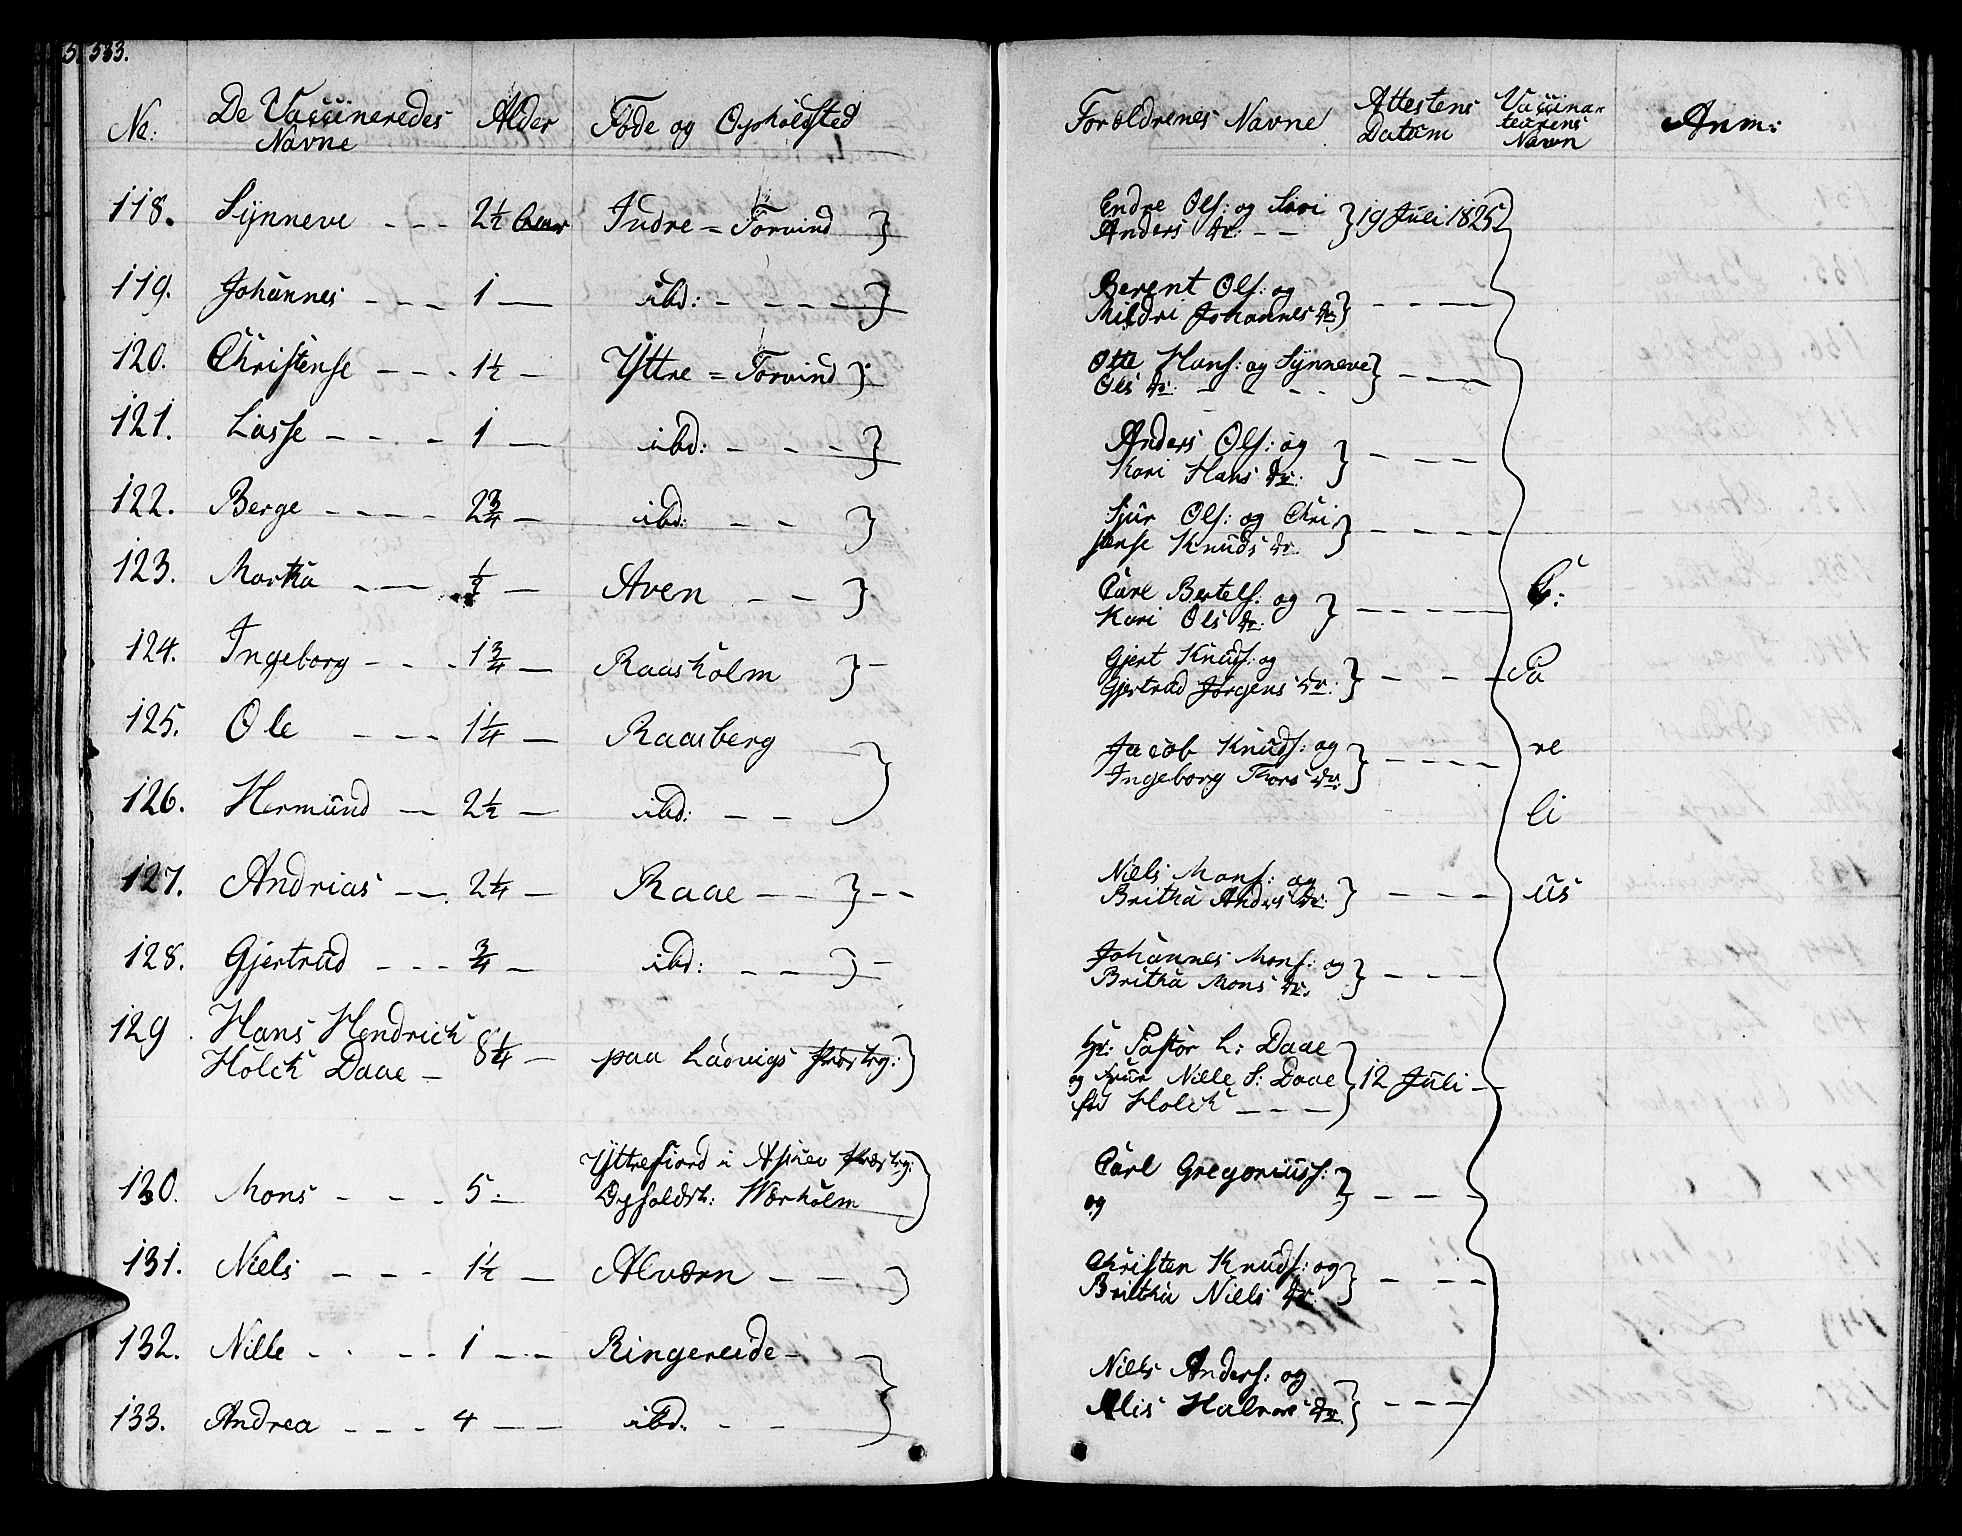 533.
No: De Vaccineredes Navne Alder Føde og Opholdsted Forældrenes Navne Attestens Datum Vaccinateurens Navn Anm:
118. Synneve - - - 2½ Aar Indre = Torvind } Endre Ols: og Siri
Anders dr: - - } 19 Juli 1825
119. Johannes - - - 1 — ibd: - - - - } Berent Ols: og
Mildri Johannes dr } - - - -
120. Christense - - - 1½ - Yttre = Torvind } Otte Hans: og Synneve
Ols dr: - - - - } - - -
121. Lasse - - - - 1 — ibd: - - - } Anders Ols: og
Kari Hans dr: } - - - -
122. Berge - - - - 2¾ - ibd: - - } Sjur Ols: og Chri
stense Knuds dr. } - - - -
123. Martha - — ½ - Aven - - } Carl Bertels: og
Kari Ols dr: } - - - - C:
124. Ingeborg - - - 1¾ - Raasholm } - Gjert Knuds: og
Gjertrud Jørgens dr: } - - - Pa
125. Ole - - - 1¼ - Raasberg } Jacob Knuds: og
Ingeborg Thors dr: } - - - - re
126. Hermund - - 2½ - ibd: - - li
127. Andrias - - 2¼ - Raae - - } - - Niels Mons: og
Britha Anders dr: } - - - - us
128. Gjertrud - - - ¾ - ibd: - - } - Johannes Mons: og
Britha Mons dr. } - - -
129. Hans Hendrich
Holck Daae - 8¼ - paa Ladvigs Præstg: } Hr: Pastor L: Daae
og Frue Nille S: Daae
fød Holck - - - } 12 Juli -
130. Mons - - - 5 - Yttrefiord i Præstg:
Opholdst: Værholm } Carl Gregoriuss:
og } - - -
131. Niels - - - 1½ - Alværn - - } Christen Knuds: og
Britha Niels dr. } - - -
132. Nille - - - - 1 - - Ringereide - } Niels Anders: og
133. Andrea - - - 4 - - ibd: - - Alis Halvors dr. } - - -